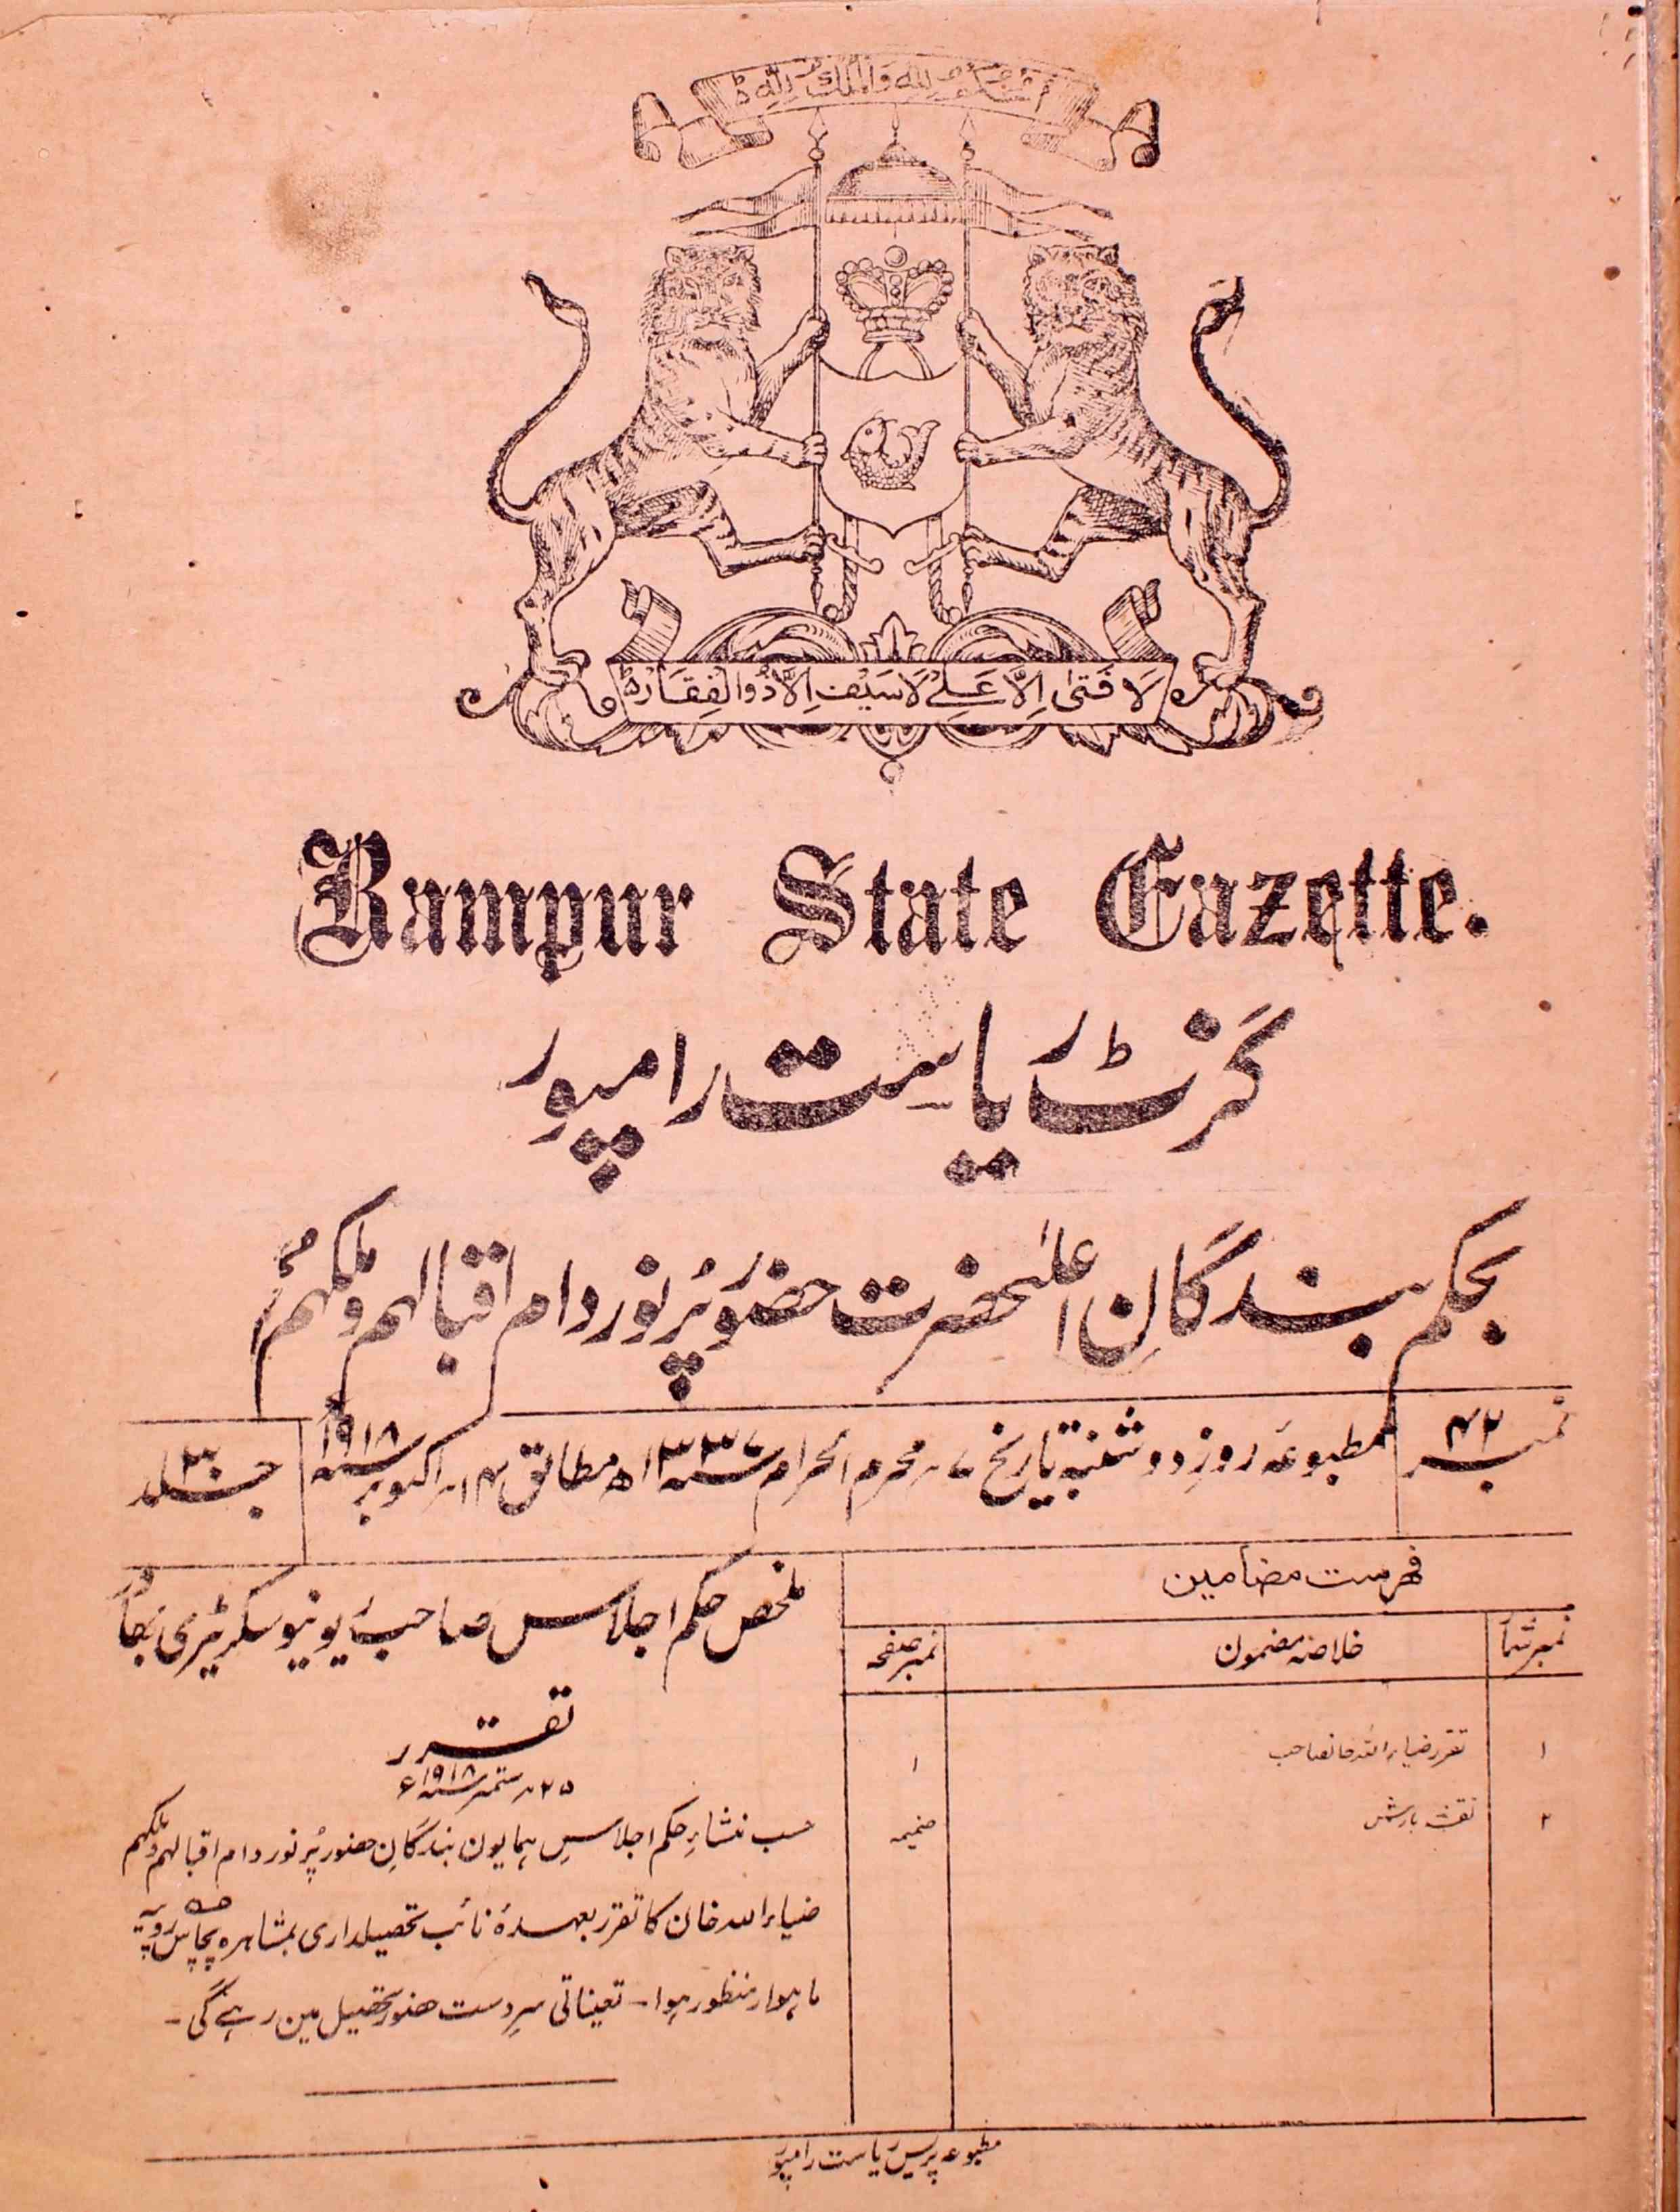 الحکم للہ والملک للہ
لَا فَتٰی اِلَّا عَلِی لَا سَیْف اِلَّا ذُوالْفِقَار
Rampur State Gazette.
گزٹ ریاست رامپور
بحکم بندگانِ اعلیٰحضرت حضور پُرنور دام اقبالہم و ملکہم
نمبر ۴۲
مطبوعہ روزِ دوشنبہ تاریخ ۷ محرم الحرام سنہ ۱۳۳۷ ھ مطابق ۱۴ اکتوبر سنہ ۱۹۱۸ء
جلد ۳۰
فہرست مضامین
نمبر شمار
خلاصہ مضمون
نمبر صفحہ
۱
تقرر ضیاء اللہ خانصاحب
۱
۲
نقشہ بارش
ضمیمہ
ملخص حکم اجلاس صاحب ریونیو سکریٹری بہادر
تقرر
۲۵ ستمبر سنہ ۱۹۱۸ء
حسب منشاءِ حکم اجلاسِ ہمایون بندگانِ حضور پُرنور دام اقبالہم و ملکہم
ضیاء اللہ خان کا تقرر بعہدۂ نائب تحصیلداری بمشاہرہ پچاس روپیہ
ماہوار منظور ہوا ۔ تعیناتی سرِدست حضور تحصیل مین رہے گی ۔
مطبوعہ پریس ریاست رامپور